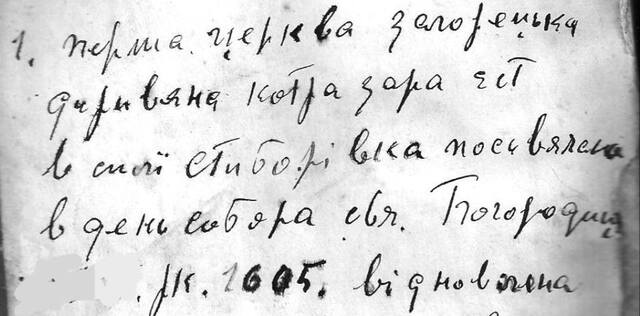 1. перша церква загорецька
диривяна котра зара єст
в силї Стиборівка посьвячена
в день собора свя. Богородици
рк. 1605. відновлена